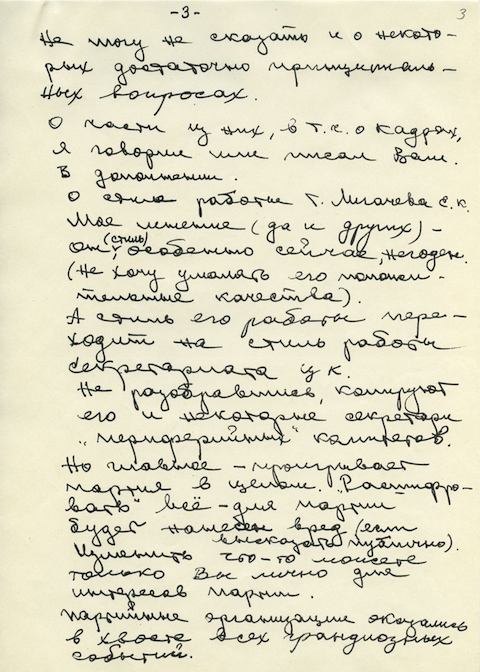 -3-
3
Не могу не сказать и о некото-
рых достаточно принципиаль-
ных вопросах.
О части из них, в т.ч. о кадрах,
я говорил или писал Вам.
В дополнении.
О стиле работы т. Лигачева Е.К.
Мое мнение (да и других) -
он (стиль), особенно сейчас, негоден.
(Не хочу умалять его положи-
тельные качества).
А стиль его работы пере-
ходит на стиль работы
Секретариата ЦК.
Не разобравшись, копируют
его и некоторые секретари
"периферийных" комитетов.
Но главное - проигрывает
партия в целом. "Расшифро-
вать" всё - для партии
будет нанесен вред (если
высказать публично).
Изменить что-то можете
только Вы лично для
интересов партии.
Партийные организации оказались
в хвосте всех грандиозных
событий.